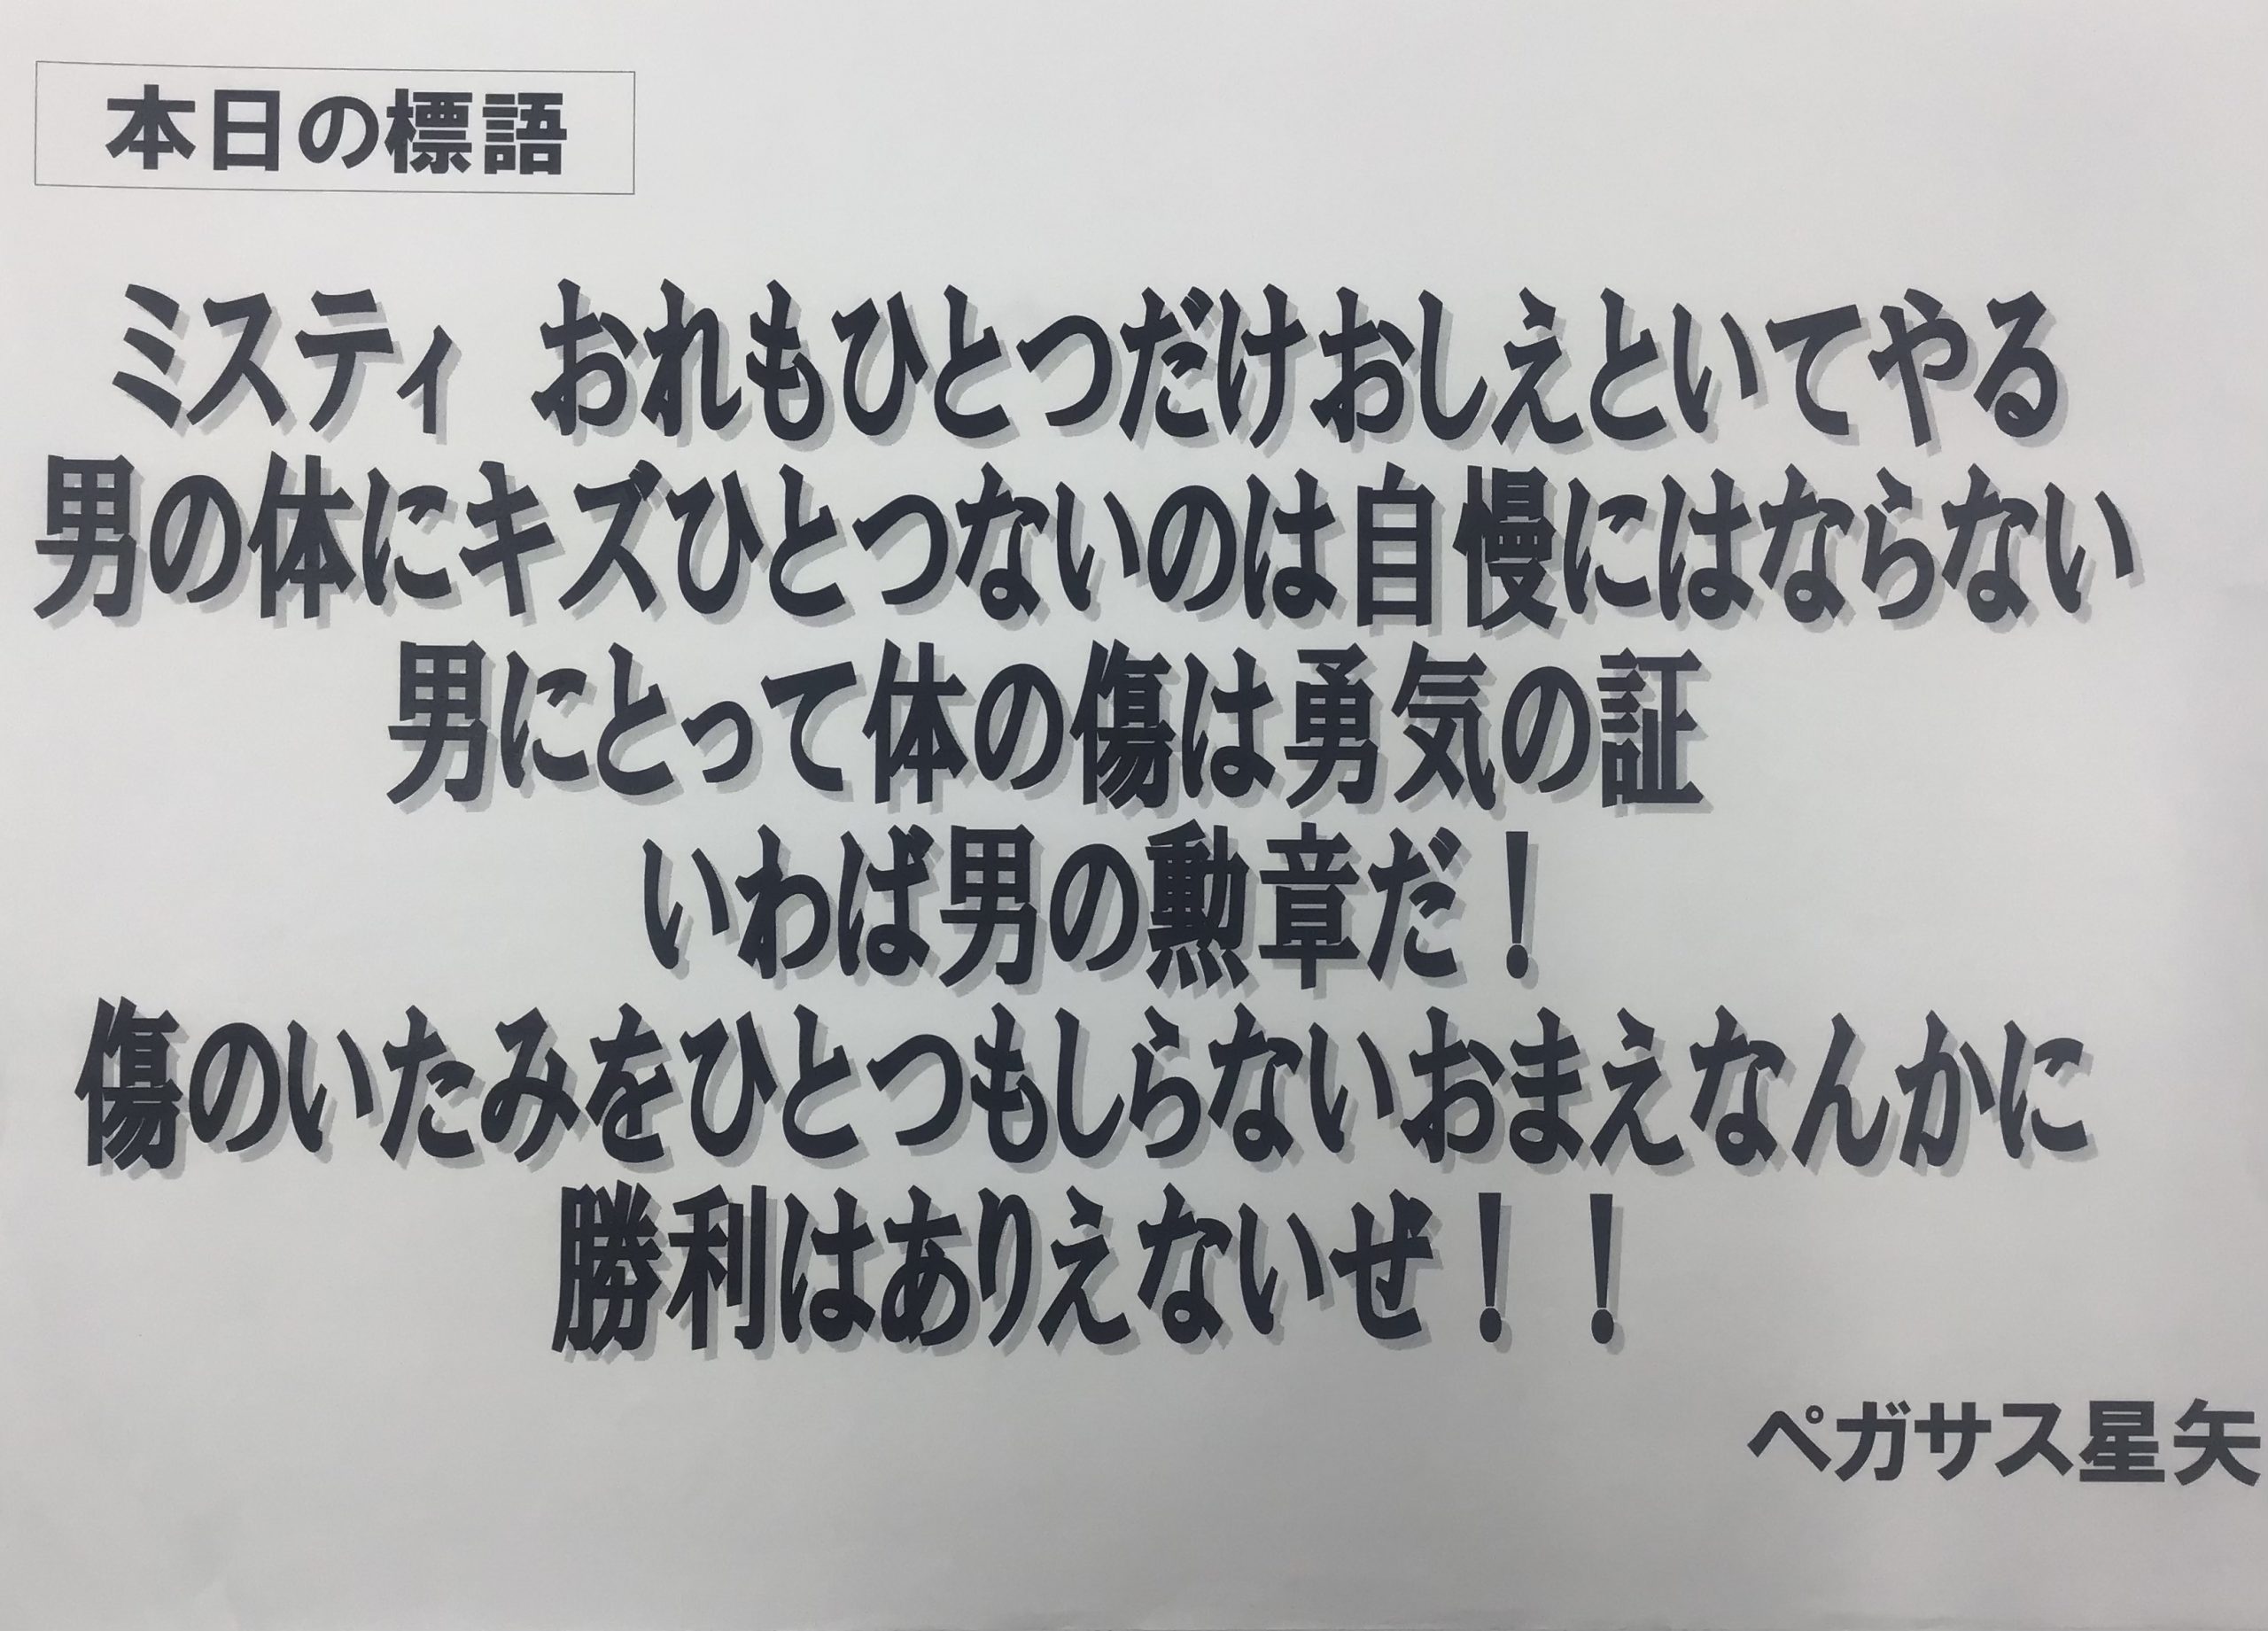 本日の標語
ミスティ　おれもひとつだけおしえといてやる
男の体にキズひとつないのは自慢にはならない
男にとって体の傷は勇気の証
いわば男の勲章だ！
傷のいたみをひとつもしらないおまえなんかに
勝利はありえないぜ！！
ペガサス星矢